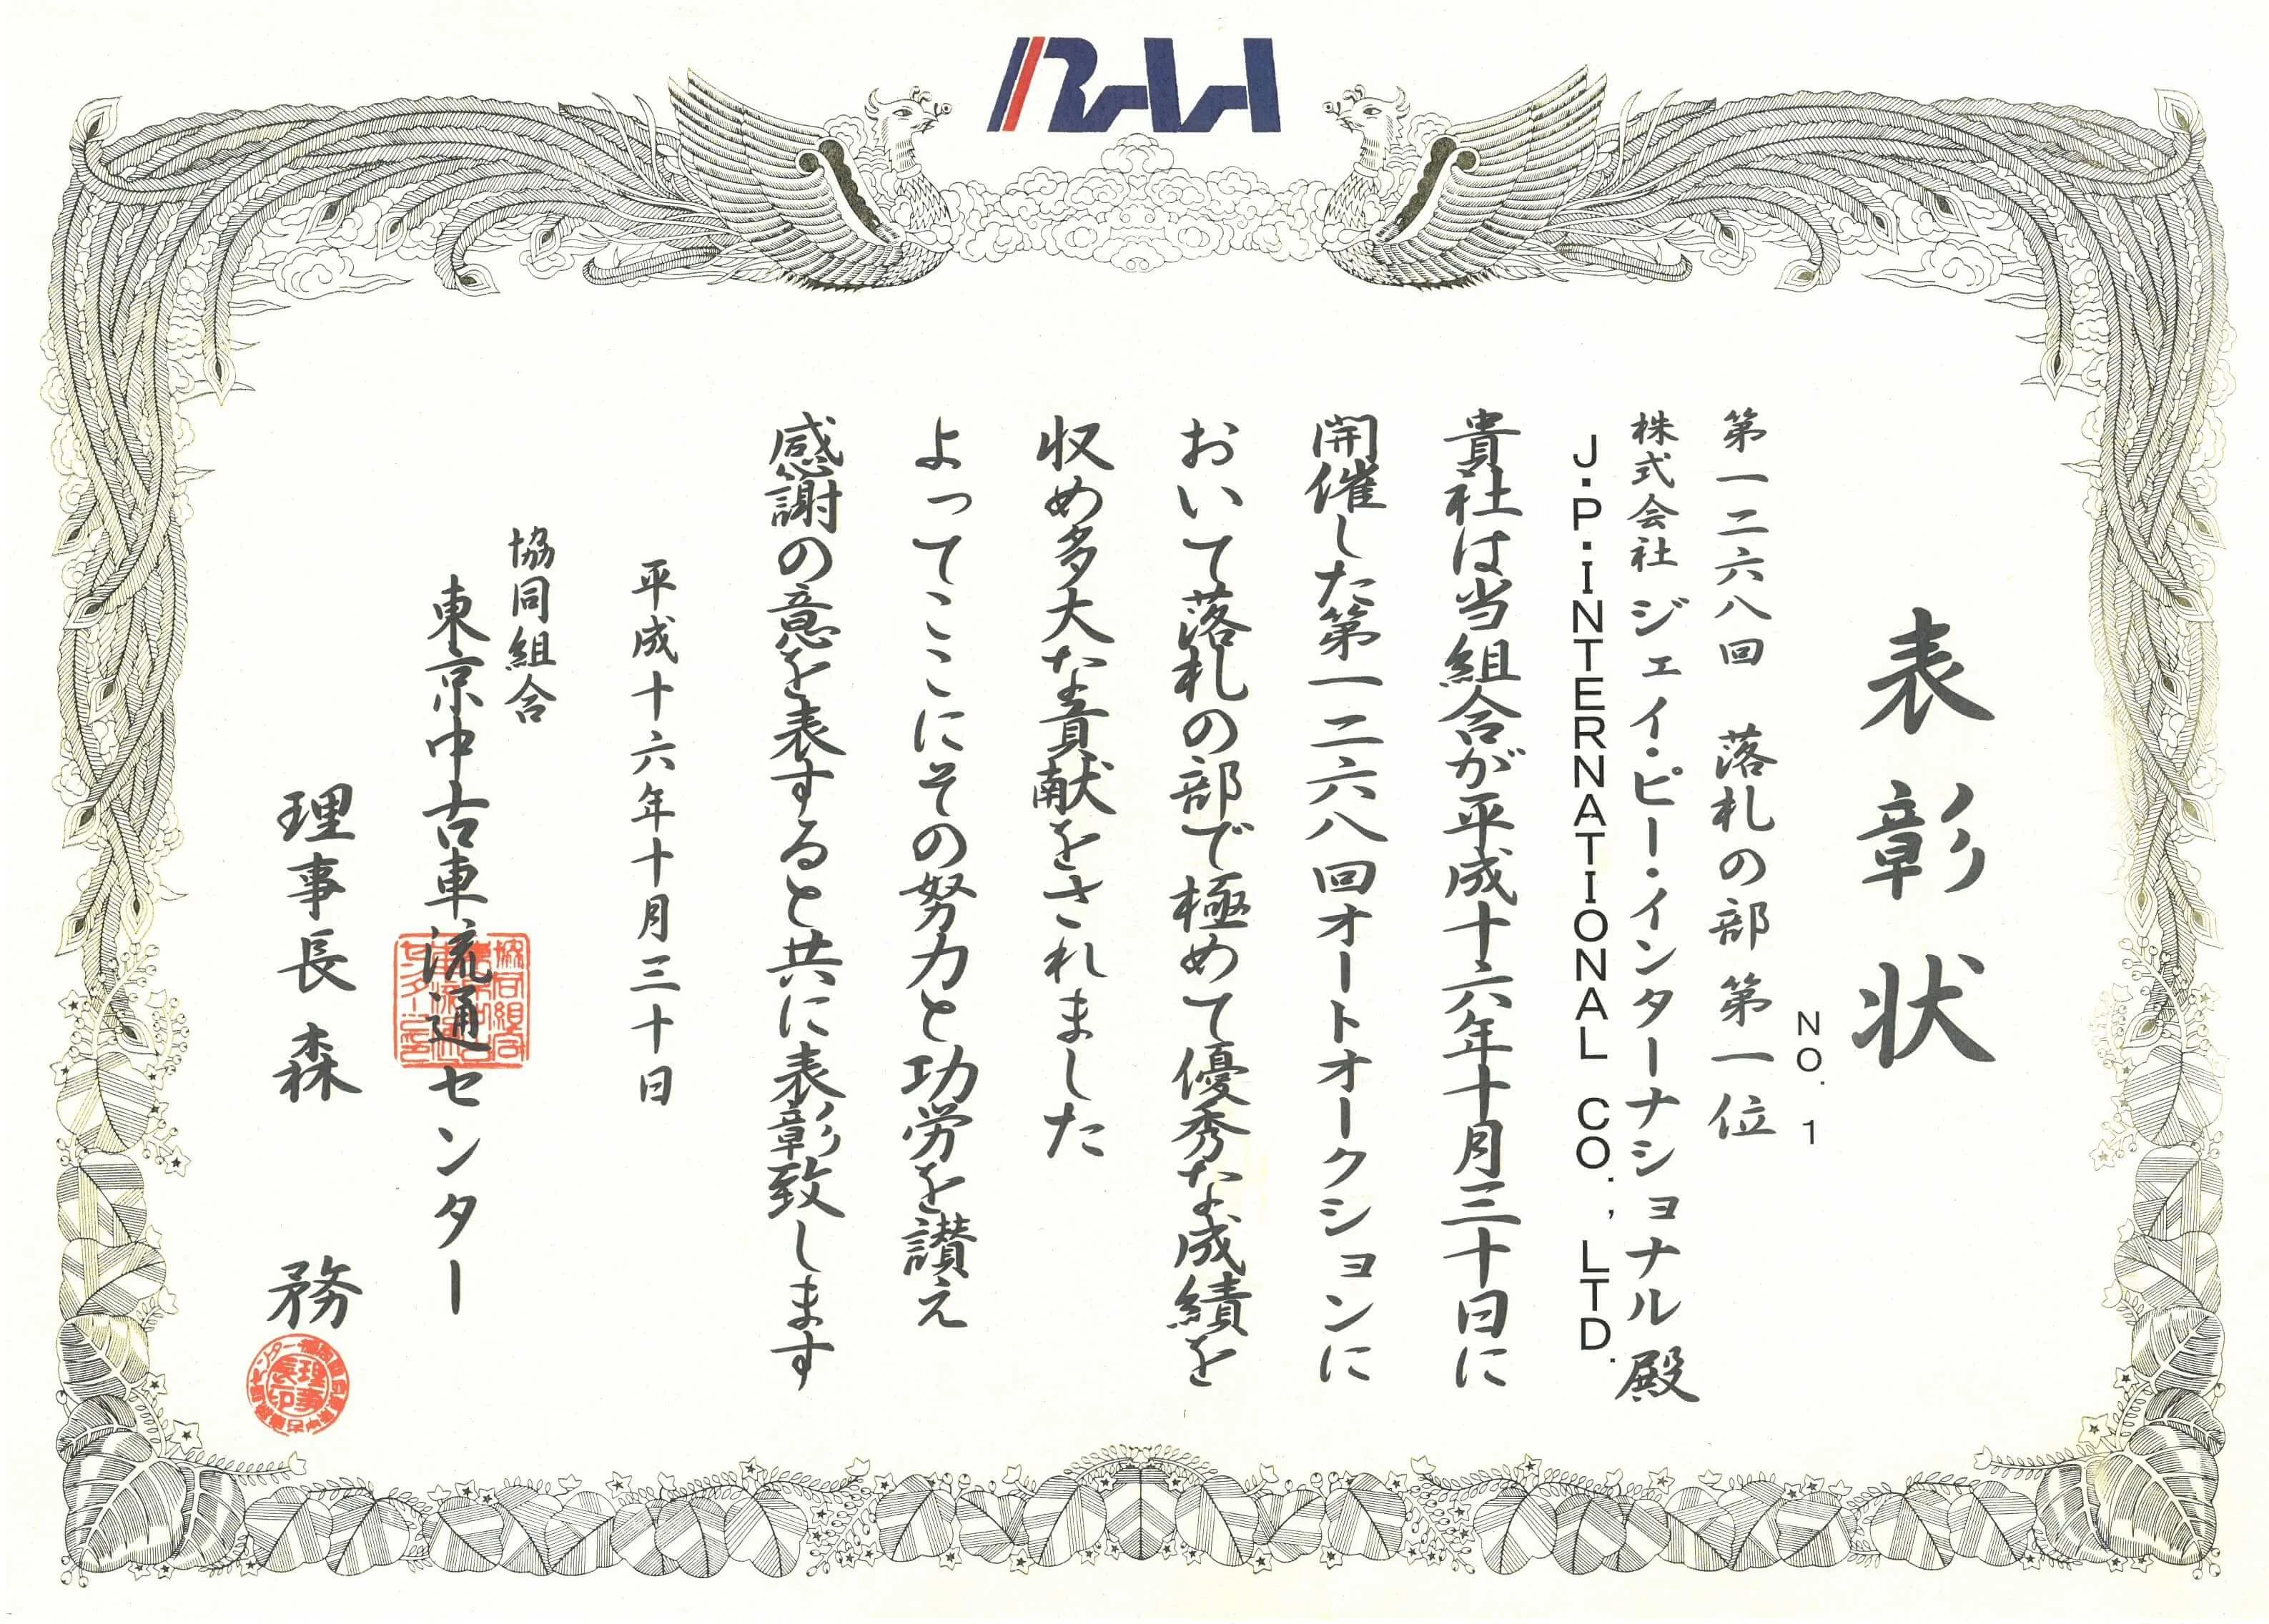 RAA
表彰状
NO. 1
第一二六八回 落札の部 第一位
株式会社 ジェイ・ピー・インターナショナル 殿
J・P・INTERNATIONAL CO., LTD.
貴社は当組合が平成十六年十月三十日に
開催した第一二六八回オートオークションに
おいて落札の部で極めて優秀な成績を
収め多大な貢献をされました
よってここにその努力と功労を讃え
感謝の意を表すると共に表彰致します
平成十六年十月三十日
協同組合
東京中古車流通センター
理事長 森 務